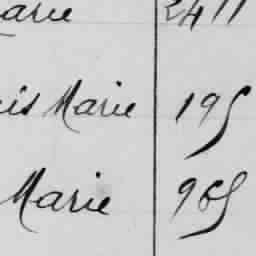 arie 2411
is Marie 195
Marie 965